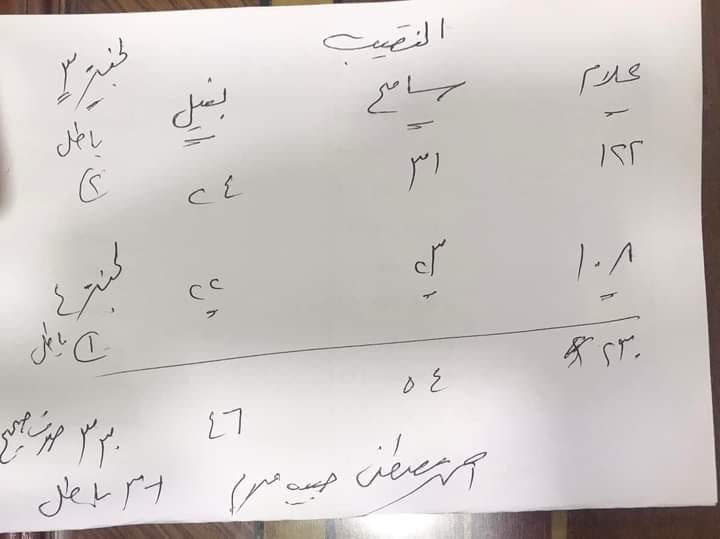 النقيب
علام سامح نبيل لجنة ٣
١٢٢ ٣١ ٢٤ باطل ٢
١٠٨ ٢٣ ٢٢ لجنة ٤
١ باطل
٢٣٠ ٥٤ ٤٦ ٣٣٠ صوت صحيح
٣ باطل
مصطفى